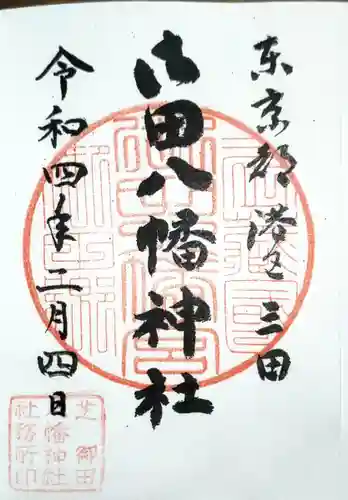 東京都港区三田
御田八幡神社
令和四年二月四日
芝御田
八幡神社
社務所印